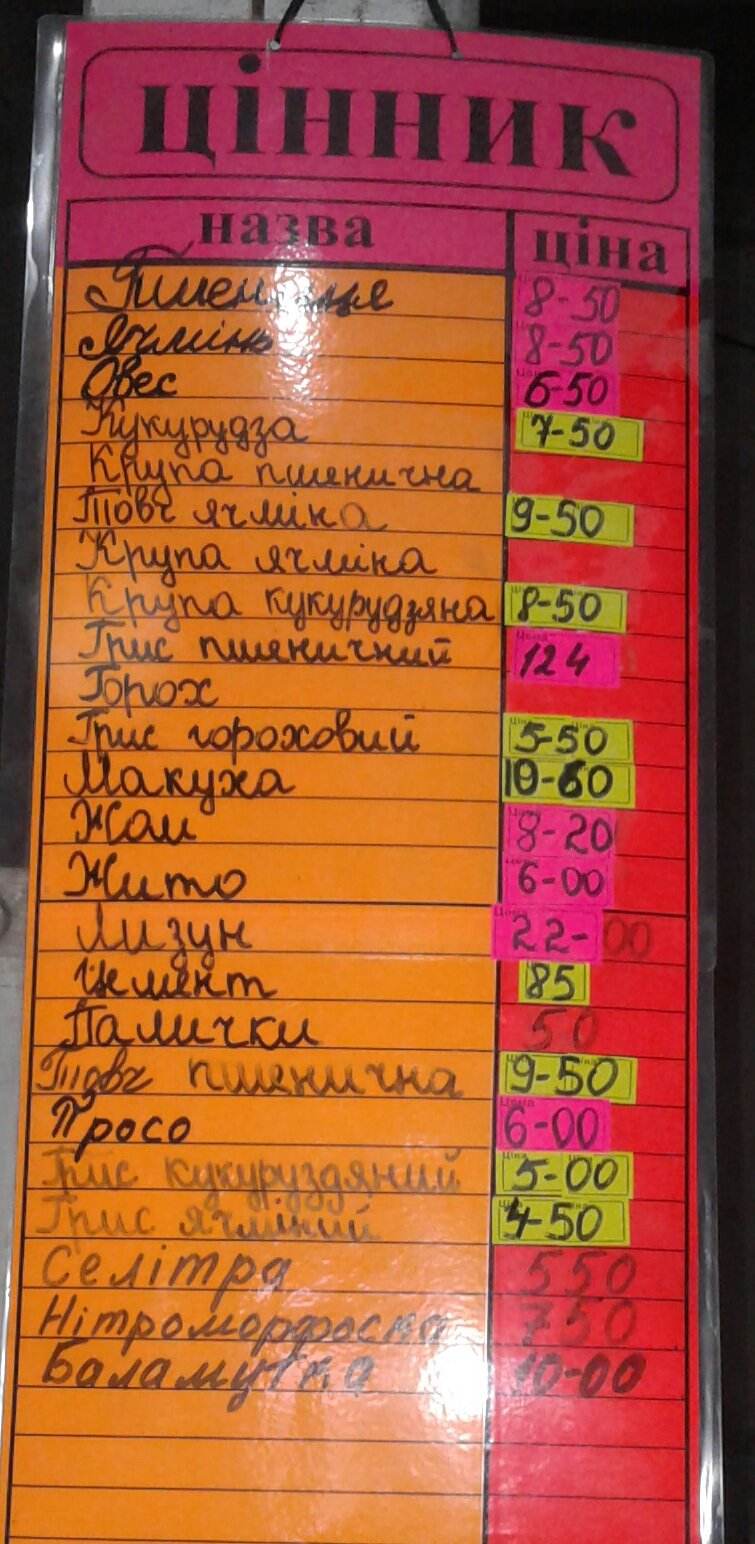 цінник
назва ціна
Пшениця 8-50
Ячмінь 8-50
Овес 6-50
Кукурудза 7-50
Крупа пшенична
Товч ячміна 9-50
Крупа ячміна
Крупа кукурудзяна 8-50
Грис пшеничний 124
Горох
Грис гороховий 5-50
Макуха 10-60
Жом 8-20
Жито 6-00
Лизун 22-00
Цемент 85
Палички 50
Товч пшенична 9-50
Просо 6-00
Грис кукуруздяний 5-00
Грис ячміний 4-50
Селітра 550
Нітроморфоска 750
Баламутка 10-00